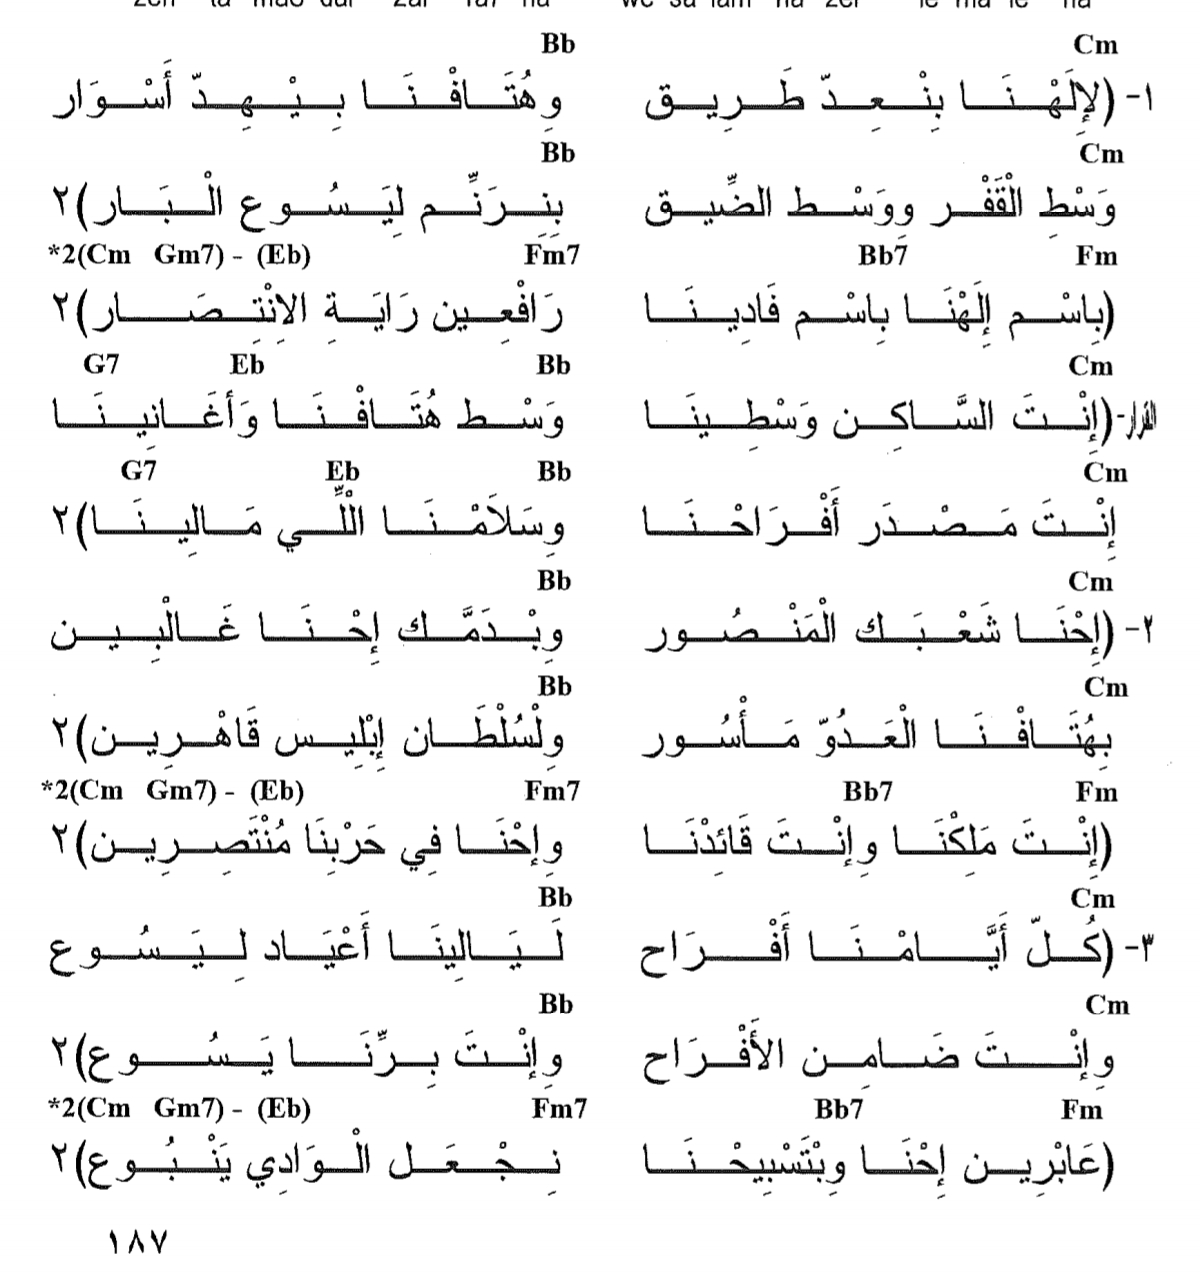 Cm Bb
١- (لإِلَهْنَا بِنْعِدّ طَرِيق وِهُتَافْنَا بِيْهِدّ أَسْوَار
Cm Bb
وَسْطِ الْقَفْر ووَسْط الضِّيق بِنِرَنِّم لِيَسُوع الْبَار)٢
Fm Bb7 Fm7 *2(Cm Gm7) - (Eb)
(بِاسْم إِلَهْنَا بِاسْم فَادِينَا رَافْعِين رَايَة الاِنْتِصَار)٢
Cm Bb Eb G7
القرار- (إِنْتَ السَّاكِن وَسْطِينَا وَسْط هُتَافْنَا وَأَغَانِينَا
Cm Bb Eb G7
إِنْتَ مَصْدَر أَفْرَاحْنَا وِسَلاَمْنَا اللِّي مَالِينَا)٢
Cm Bb
٢- (إِحْنَا شَعْبَك الْمَنْصُور وِبْدَمَّك إِحْنَا غَالْبِين
Cm Bb
بِهُتَافْنَا الْعَدُوّ مَأْسُور ولْسُلْطَان إِبْلِيس قَاهْرِين)٢
Fm Bb7 Fm7 *2(Cm Gm7) - (Eb)
(إِنْتَ مَلِكْنَا وِإِنْتَ قَائِدْنَا وِإِحْنَا فِي حَرْبِنَا مُنْتَصِرِين)٢
Cm Bb
٣- (كُلّ أَيَّامْنَا أَفْرَاح لَيَالِينَا أَعْيَاد لِيَسُوع
Cm Bb
وِإِنْتَ ضَامِن الأَفْرَاح وِإِنْتَ بِرِّنَا يَسُوع)٢
Fm Bb7 Fm7 *2(Cm Gm7) - (Eb)
(عَابْرِين إِحْنَا وِبْتَسْبِيحْنَا نِجْعَل الْوَادِي يَنْبُوع)٢
١٨٧